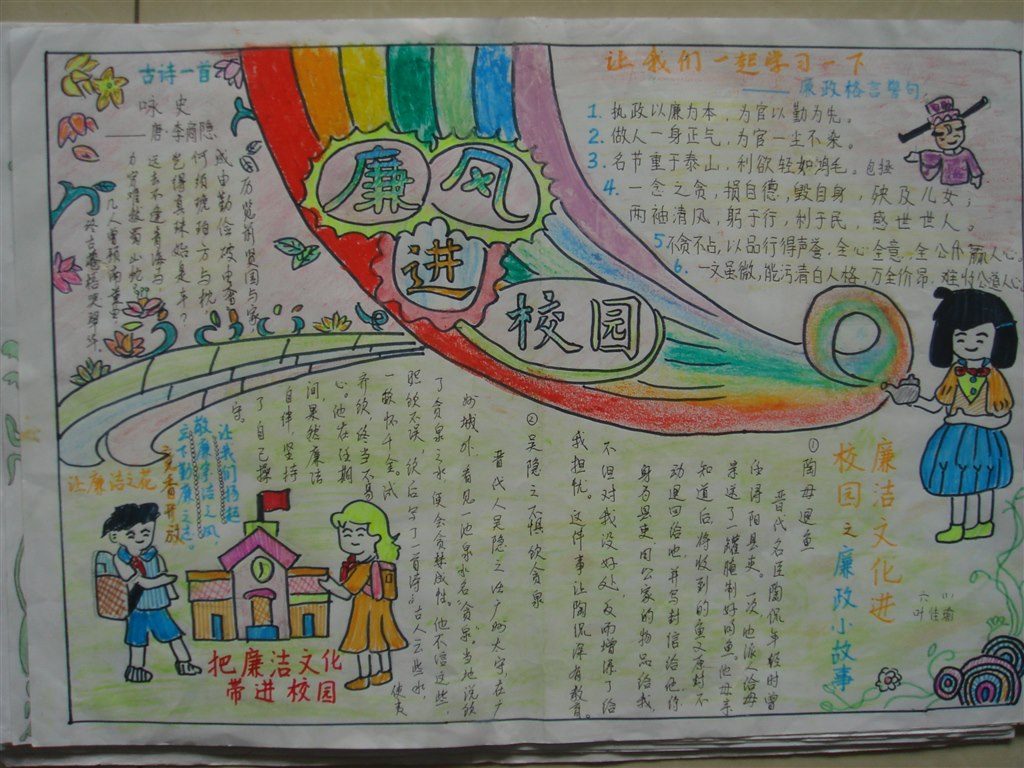 古诗一首
咏 史
——唐·李商隐
历览前贤国与家
成由勤俭破由奢。
何须琥珀方与枕,
岂得真珠始是车?
运去不逢青海马,
力穷难拔蜀山蛇。
几人曾预南薰曲
终古苍梧哭翠华。
廉风
进
校园
让我们一起学习一下
——廉政格言警句
1. 执政以廉为本,为官以勤为先。
2. 做人一身正气,为官一尘不染。
3. 名节重于泰山,利欲轻如鸿毛。
包拯
4. 一念之贪,损自德,毁自身,殃及儿女;
两袖清风,躬于行,利于民,感世世人。
5 不贪不占,以品行得声誉,全心全意,全公
6. 一文虽微,能污清白人格,万金价昂,难
廉洁文化进
校园之廉政小故事
六(1)
叶佳瑜
①陶母退鱼
晋代名臣陶侃年轻时曾
任浔阳县吏。一次他派人给母
亲送了一罐腌制好的鱼。他母亲
知道后,将收到的鱼又原封不
动退回给他并写封信给他:你
身为县吏用公家的物品给我
不但对我没好处,反而增添了给
我担忧。这件事让陶侃深有教育。
②吴隐之不惧饮贪泉
晋代人吴隐之任广州太守,在广
州城外,看见一池泉水名“贪泉”。当地说饮
了贪泉之水,便会贪婪成性。他不信这些,
照饮不误,饮后写了一首诗:古人云此水,
一歃怀千金。试使夷
齐饮终当不易
心。他在任期
间,果然廉洁
自律坚持
了自己操
守。
让我们扬起
敬廉学洁之风,
立下勤廉之志。
让廉洁之花
竞香开放
把廉洁文化
带进校园